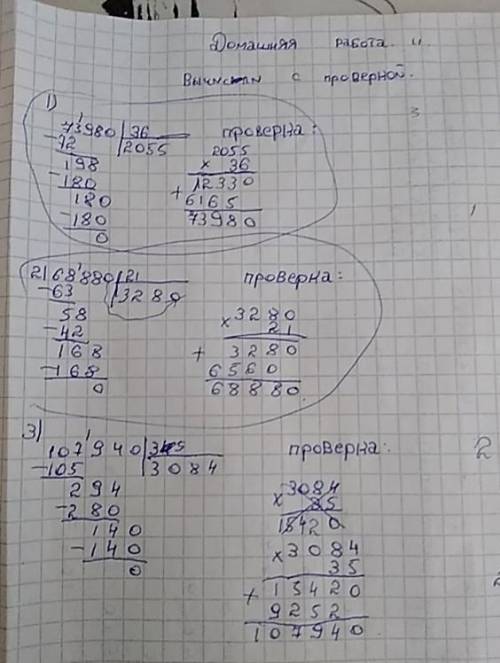 Домашняя работа.
Вычисли с проверной.
1)
73980 | 36
-72 | 2055
198
-180
180
-180
0
проверна:
2055
x 36
12330
+
6165
73980
2) 68880 | 21
-63 | 3280
58
-42
168
-168
0
проверна:
3280
x 21
+ 3280
6560
68880.
3)
107940 | 35
-105 | 3084
294
-280
140
-140
0
проверна:
3084
x 35
18420
x 3084
35
+ 15420
9252
107940.
2